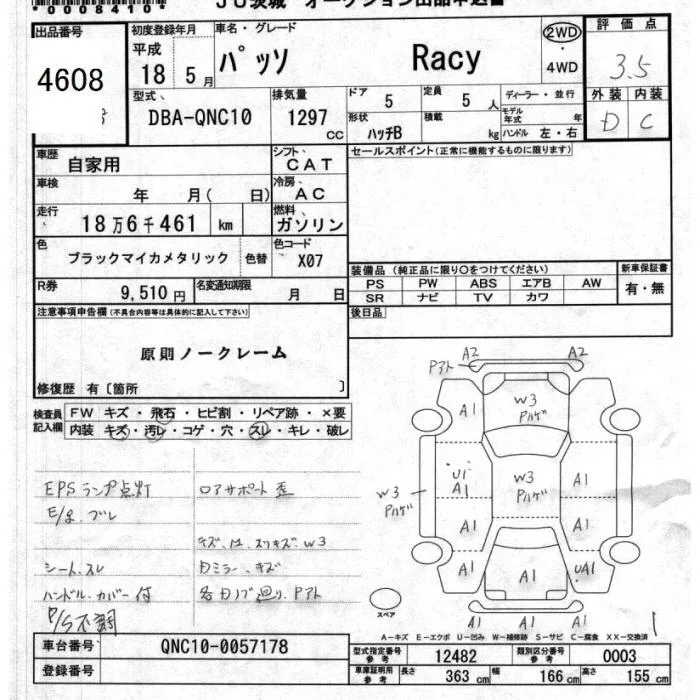 *0008410*
JU茨城 オークション出品申込書
出品番号 4608
初度登録年月 平成 18 5月
車名・グレード パッソ Racy
2WD ・ 4WD
評価点 3.5
外装 D 内装 C
型式 DBA-QNC10
排気量 1297 CC
ドア 5
定員 5 人
形状 ハッチB
積載 kg
ディーラー・並行
モデル年式 年
ハンドル 左・右
車歴 自家用
シフト CAT
セールスポイント(正常に機能するものに限ります)
車検 年 月( 日)
冷房 AC
走行 18万6千461 km
燃料 ガソリン
色 ブラックマイカメタリック 色替
色コード X07
装備品 (純正品に限り○をつけてください)
PS PW ABS エアB AW
SR ナビ TV カワ
新車保証書 有・無
R券 9,510 円
名変通知期限 月 日
後日品
注意事項申告欄(不具合内容等は具体的に記入して下さい)
原則ノークレーム
修復歴 有〔箇所 〕
検査員記入欄
FW キズ・飛石・ヒビ割・リペア跡・×要
内装 キズ・汚レ・コゲ・穴・スレ・キレ・破レ
EPSランプ点灯
E/g.ブレ
シート.スレ
ハンドル.カバー付
P/S不調
ロアサポート歪
キズ.凹.スリキズ.W3
Dミラー.キズ
各Dノブ廻り.Pアト
Pアト A2 A2
A1 W3 Pハゲ A1
W3 Pハゲ
U1 A1 W3 Pハゲ A1
A1 A1
A1 A1 UA1
A1 A1 A1
スペア
A−キズ E−エクボ U−凹み W−補修跡 S−サビ C−腐食 XX−交換済
車台番号 QNC10-0057178
登録番号
型式指定番号 参考 12482
類別区分番号 参考 0003
車庫証明用 参考 長さ 363 cm 幅 166 cm 高さ 155 cm